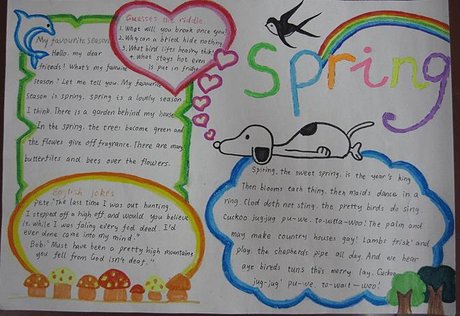 My favourite season
Hello, my dear
friends! What's my favourite
season? Let me tell you. My favourite
season is spring. Spring is a lovely season
I think. There is a garden behind my house.
In the spring, the trees become green and
the flowers give off fragrance. There are many
butterflies and bees over the flowers.
Guesses the riddle
1. What will you break once you
2. Why can a bried hide nothing
3. What bird lifts heavy things
4. What stays hot even
is put in fridge
Spring
English jokes
Pete: "The last time I was out hunting,
I stepped off a high off and would you believe
it, while I was faling every fed deed I'd
ever done came into my mind."
Bob: "Must have been a pretty high mountaine
you fell from God isn't deaf."
Spiring, the sweet spring, is the year's king
Then blooms each thing, then maids dance in a
ring. Clod doth not sting. the pretty birds do sing
Cuckoo jug-jug! pu-we. to-witta-woo! The palm and
may make country houses gay! Lambs frisk and
play. the shepherds pipe all day. And we hear
aye bireds tuns this merry lay. Cuckoo
jug-jug! pu-we, to-wait-woo!